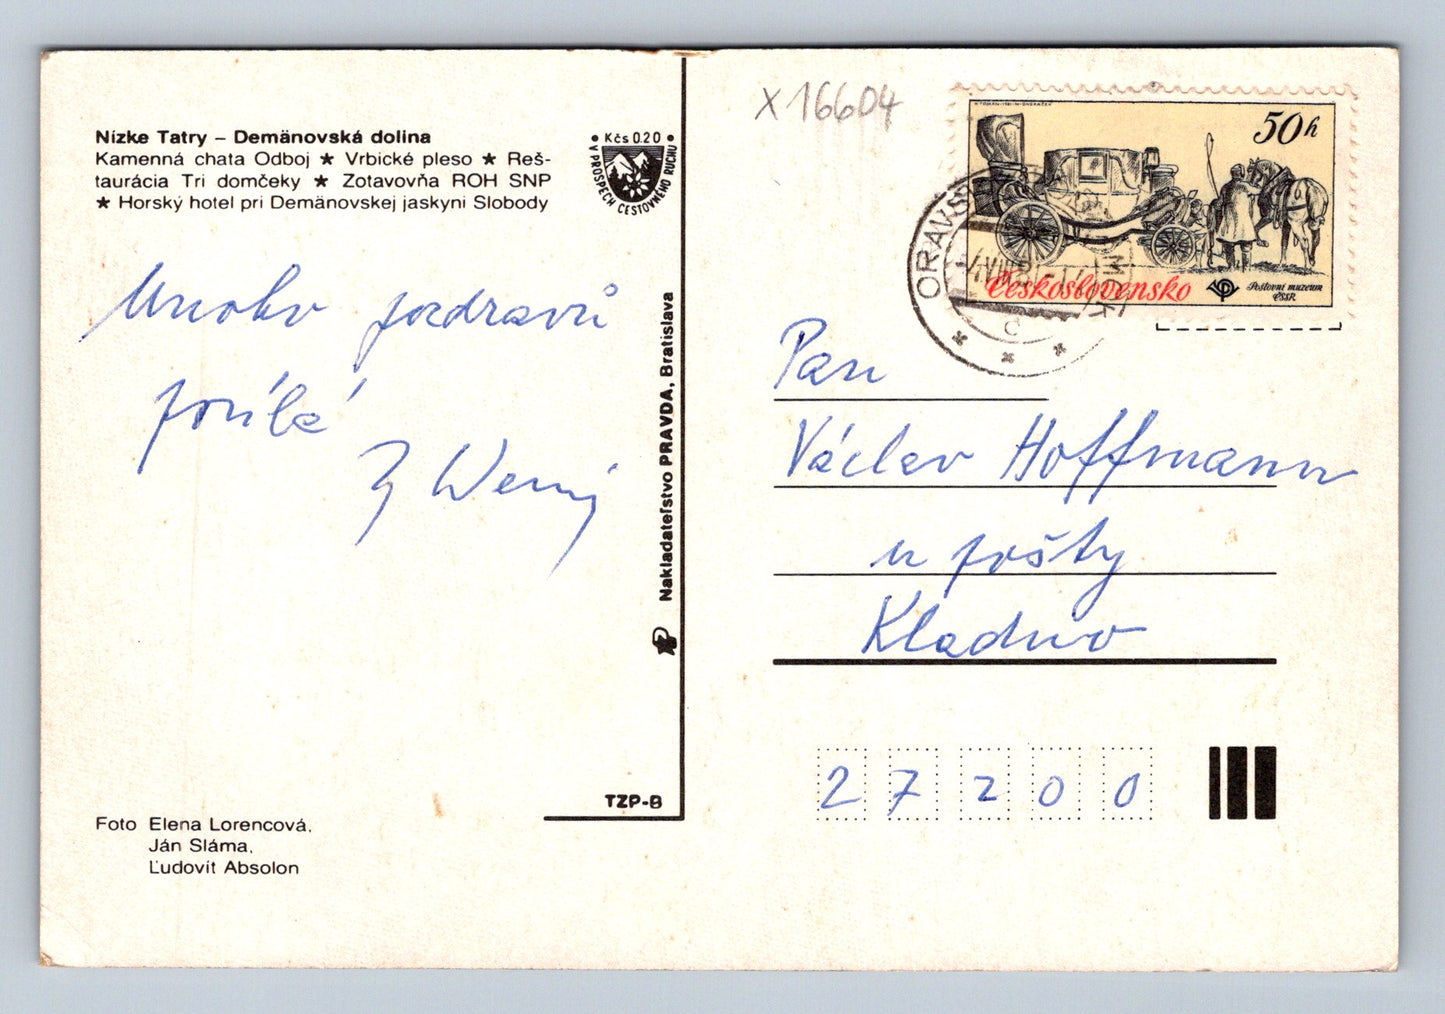 Nízke Tatry – Demänovská dolina
Kamenná chata Odboj ★ Vrbické pleso ★ Reš-
taurácia Tri domčeky ★ Zotavovňa ROH SNP
★ Horský hotel pri Demänovskej jaskyni Slobody
• Kčs 0.20 •
V PROSPECH CESTOVNÉHO RUCHU
Mnoho pozdravů
posílá
Foto Elena Lorencová,
Ján Sláma,
Ľudovít Absolon
Nakladateľstvo PRAVDA, Bratislava
TZP-8
X 16604
50 h
Československo
Poštovní muzeum
ČSSR
Pan
Václav Hoffmann
u pošty
Kladno
27200